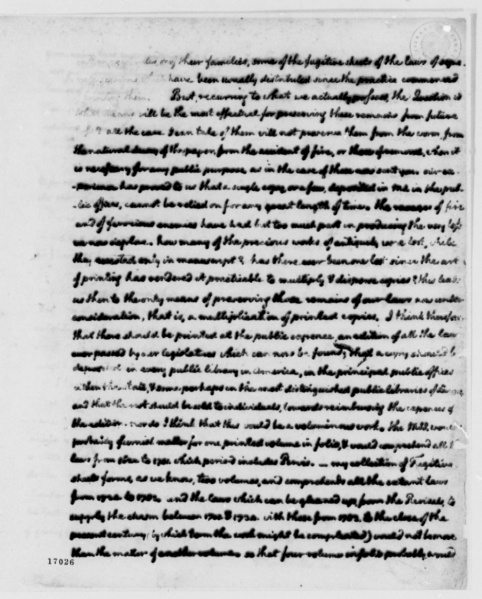 of their families, some of the fugitive sheets of the laws of
have been usually distributed since the practice commenced
But, recurring to what we actually possess, the Question is
will be the most effectual for preserving these remains from future
all the care I can take of them will not preserve them from the worm, from
the natural decay of the paper, from the accident of fire, or those of removal, when it
is necessary for any public purpose, as in the case of those now sent you. our ex-
-perience has proved to us that a single copy, or a few, deposited in MS. in the pub-
lic offices, cannot be relied on for any great length of time. the ravages of fire
and of ferocious enemies have had but too much part in producing the very loss
we now deplore. how many of the precious works of antiquity were lost, while
they existed only in manuscript? has there ever been one lost since the art
of printing has rendered it practicable to multiply & disperse copies? this leads
us then to the only means of preserving those remains of our laws now under
consideration, that is, a multiplication of printed copies. I think therefore
that there should be printed at the public expence, an edition of all the laws
ever passed by our legislatures which can now be found; that a copy should be
deposited in every public library in America, in the principal public offices
within the state, & some perhaps in the most distinguished public libraries of Europe,
and that the rest should be sold to individuals, towards reimbursing the expences of
the edition. nor do I think that this would be a voluminous work. the MSS. would
probably furnish matter for one printed volume in folio, & would comprehend all the
laws from 1624 to 1701 which period includes Purvis. my collection of Fugitive
sheets forms, as we know, two volumes, and comprehends all the extant laws
from 1734 to 1783. and the laws which can be gleaned up from the Revisals, to
supply the chasm between 1701 & 1734. with those from 1783. to the close of the
present century (by which term the work might be compleated) would not be more
than the matter of another volume. so that four volumes in folio probably would
17026